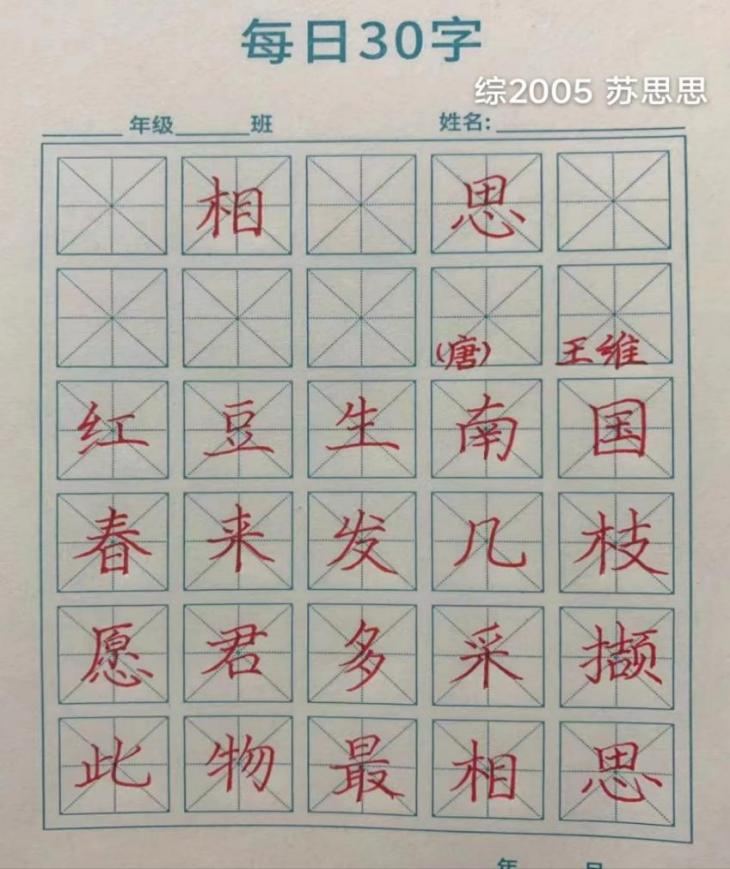 每日30字
综2005 苏思思
年级 班 姓名:
相思
(唐) 王维
红豆生南国
春来发几枝
愿君多采撷
此物最相思